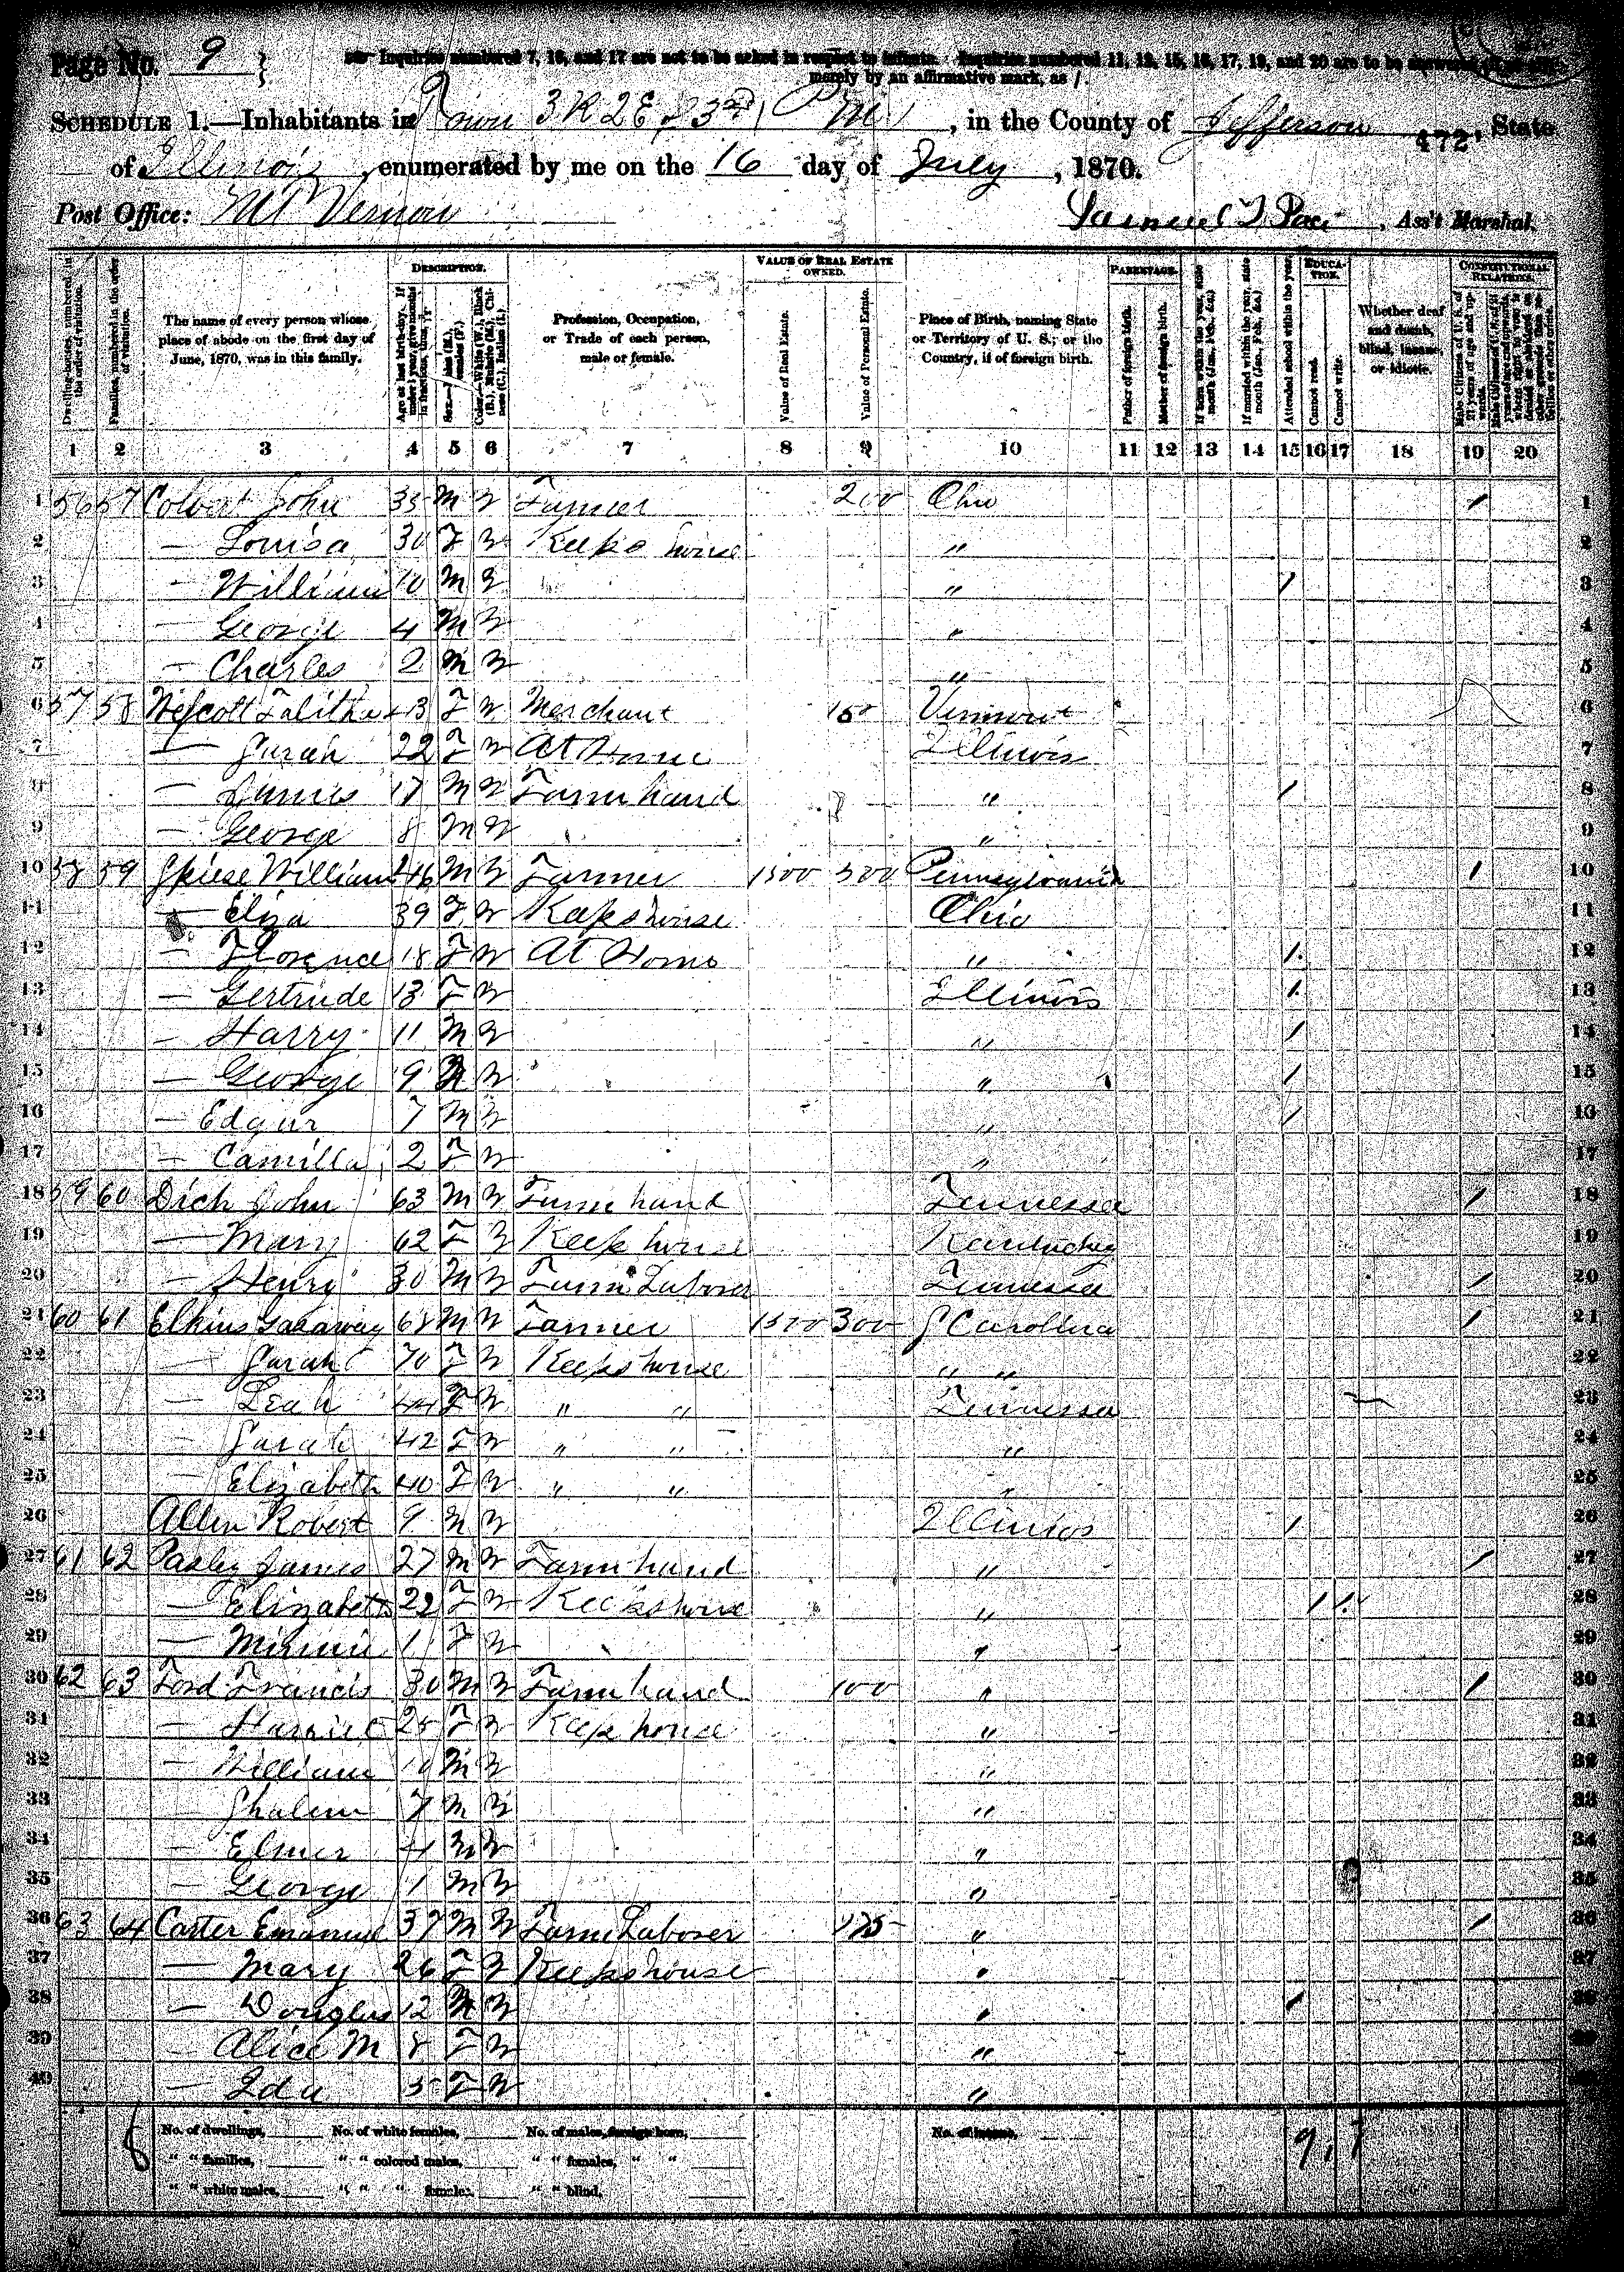 Page No. 9
Inquiries numbered 7, 16, and 17 are not to be asked in respect to infants. Inquiries numbered 11, 12, 15, 16, 17, 19, and 20 are to be answered
merely by an affirmative mark, as /.
SCHEDULE 1.—Inhabitants in Town 3 R 2 E of 3rd P M, in the County of Jefferson, State
472
of Illinois, enumerated by me on the 16 day of July, 1870.
Post Office: Mt Vernon
Samuel T Pace, Ass't Marshal.
DESCRIPTION. VALUE OF REAL ESTATE OWNED. PARENTAGE. EDUCATION. CONSTITUTIONAL RELATIONS.
Dwelling-houses, numbered in the order of visitation. Families, numbered in the order of visitation. The name of every person whose place of abode on the first day of June, 1870, was in this family. Age at last birth-day. If under 1 year, give months in fractions, thus, Sex.—Males (M.), Females (F.) Color.—White (W.), Black (B.), Mulatto (M.), Chinese (C.), Indian (I.) Profession, Occupation, or Trade of each person, male or female. Value of Real Estate. Value of Personal Estate. Place of Birth, naming State or Territory of U. S.; or the Country, if of foreign birth. Father of foreign birth. Mother of foreign birth. If born within the year, state month (Jan., Feb., &c.) If married within the year, state month (Jan., Feb., &c.) Attended school within the year. Cannot read. Cannot write. Whether deaf and dumb, blind, insane, or idiotic. Male Citizens of U. S. of 21 years of age and upwards.
1 2 3 4 5 6 7 8 9 10 11 12 13 14 15 16 17 18 19 20
1 56 57 Colvert John 35 M W Farmer 200 Ohio / 1
2 — Louisa 30 F W Keeps house " 2
3 — William 10 M W " / 3
4 — George 4 M W " 4
5 — Charles 2 M W " 5
6 57 58 Wescott Talitha 43 F W Merchant 150 Vermont 6
7 — Sarah 22 F W At Home Illinois 7
8 — James 17 M W Farm hand " / 8
9 — George 8 M W " 9
10 58 59 Spiese William 46 M W Farmer 1500 500 Pennsylvania / 10
11 — Eliza 39 F W Keeps house Ohio 11
12 — Florence 18 F W At Home " / 12
13 — Gertrude 13 F W Illinois / 13
14 — Harry 11 M W " / 14
15 — George 9 M W " / 15
16 — Edgar 7 M W " / 16
17 — Camilla 2 F W " 17
18 59 60 Dick John 63 M W Farm hand Tennessee / 18
19 — Mary 62 F W Keep house Kentucky 19
20 — Henry 30 M W Farm Laborer Tennessee / 20
21 60 61 Elkins Galaway 68 M W Farmer 1500 300 S Carolina / 21
22 — Sarah 70 F W Keeps house " " 22
23 — Leah 44 F W " " Tennessee 23
24 — Sarah 42 F W " " " 24
25 — Elizabeth 40 F W " " " 25
26 Allen Robert 9 M W Illinios / 26
27 61 62 Pasley James 27 M W Farm hand " / 27
28 — Elizabeth 22 F W Keeps house " / / 28
29 — Minnie 1 F W " 29
30 62 63 Ford Francis 30 M W Farm hand 100 " / 30
31 — Harriet 25 F W Keep house " 31
32 — William 10 M W " 32
33 — Shalem 7 M W " 33
34 — Elmer 4 M W " 34
35 — George 1 M W " 35
36 63 64 Carter Emanuel 37 M W Farm Laborer 125 " / 36
37 — Mary 26 F W Keeps house " 37
38 — Douglas 12 M W " / 38
39 — Alice M 8 F W " 39
40 — Ida 5 F W "
8 No. of dwellings, No. of white females, No. of males, foreign born, No. of insane, 9, 1
" " families, " " colored males, " " females, " "
" " white males, " " " females, " " blind,